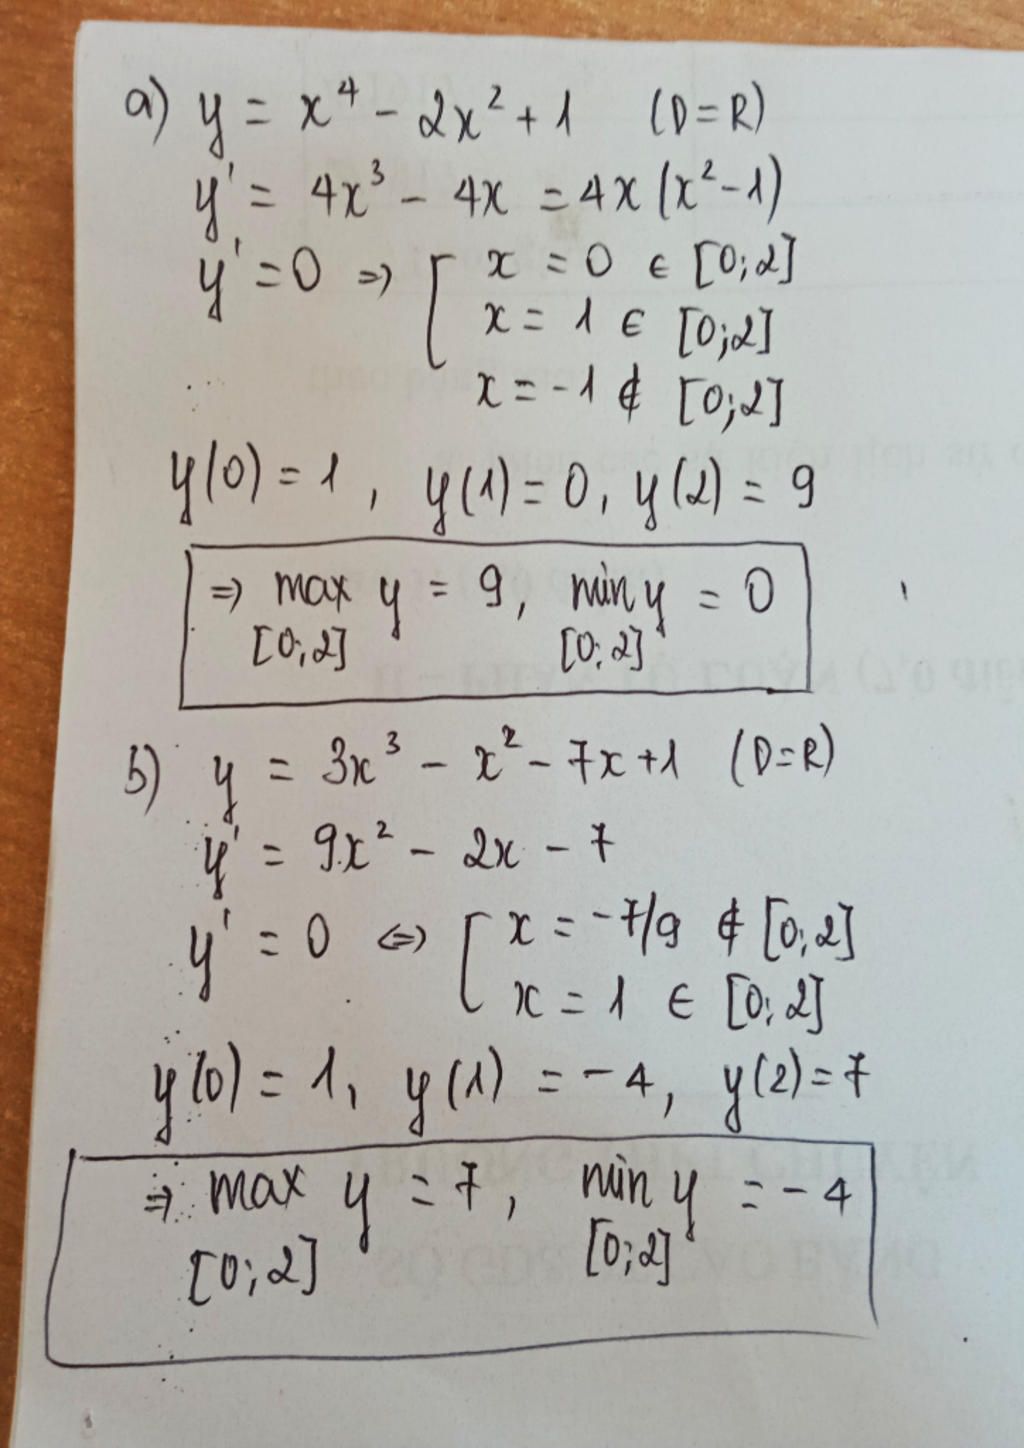 a) y = x⁴ - 2x² + 1 (D=R)
y' = 4x³ - 4x = 4x(x²-1)
y' = 0 => [ x = 0 ∈ [0;2]
x = 1 ∈ [0;2]
x = -1 ∉ [0;2]
y(0) = 1, y(1) = 0, y(2) = 9
=> max y = 9, min y = 0
[0;2] [0;2]
b) y = 3x³ - x² - 7x + 1 (D=R)
y' = 9x² - 2x - 7
y' = 0 <=> [ x = -7/9 ∉ [0;2]
x = 1 ∈ [0;2]
y(0) = 1, y(1) = -4, y(2) = 7
=> max y = 7, min y = -4
[0;2] [0;2]